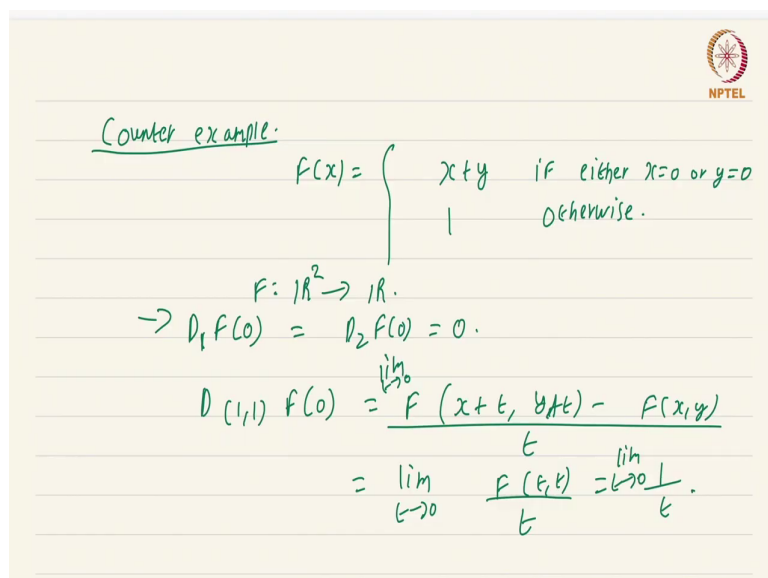 NPTEL
Counter example.
F(x) = { x+y if either x=0 or y=0
1 otherwise.
F: ℝ² → ℝ.
→ D₁F(0) = D₂F(0) = 0.
D(1,1) F(0) = lim t→0 F(x+t, y+t) - F(x,y) / t
= lim t→0 F(t,t) / t = lim t→0 1/t.